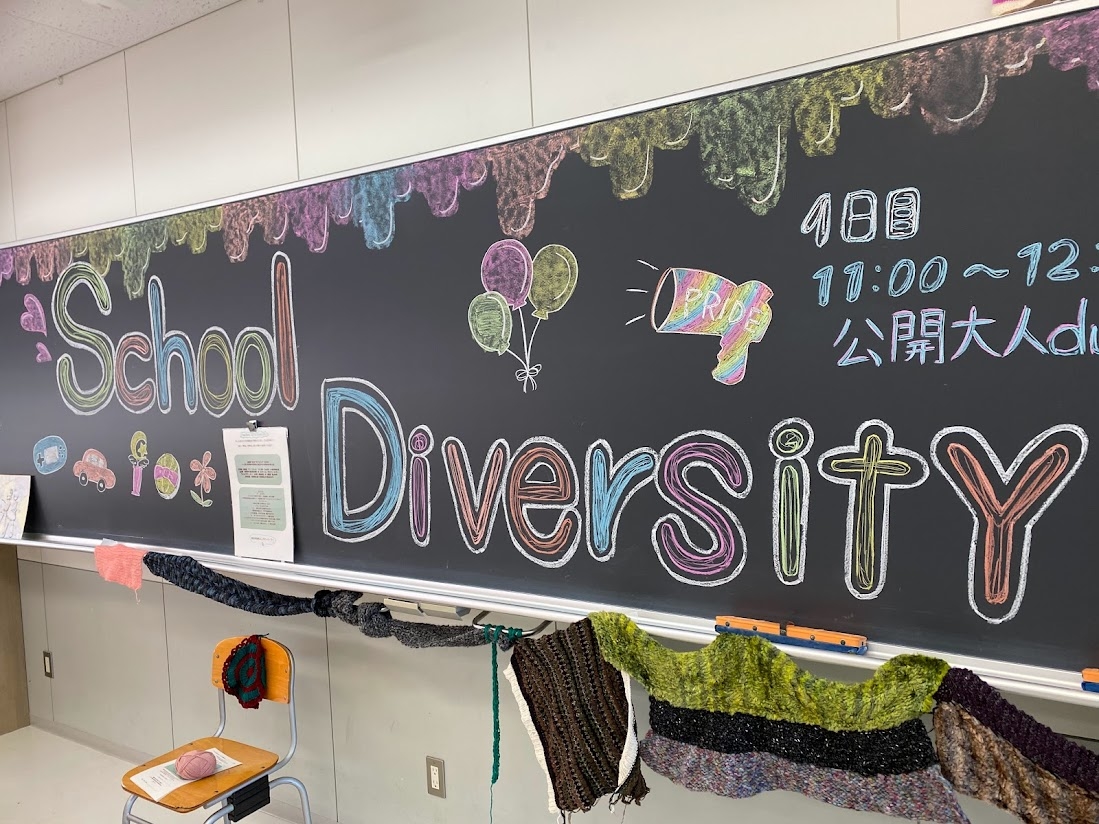 School
Diversity
PRIDE
1日目
11:00～12:
公開大人du